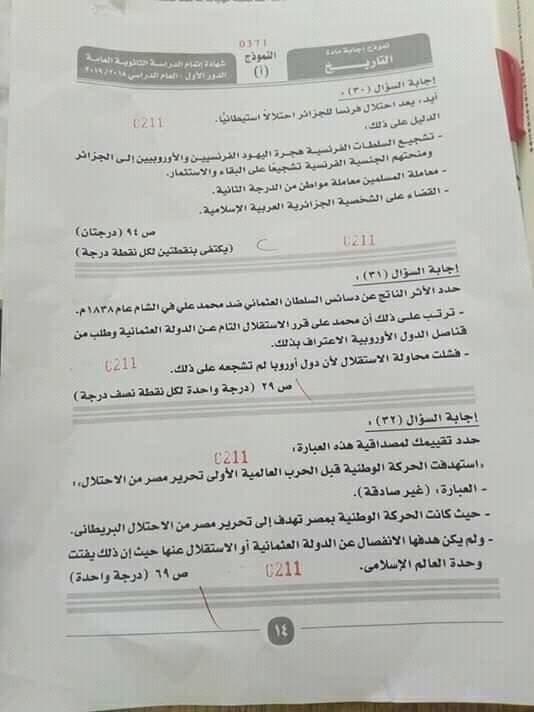 0371
نموذج إجابة مادة
التاريخ
النموذج
(أ)
شهادة إتمام الدراسة الثانوية العامة
الدور الأول - العام الدراسي ٢٠١٨ / ٢٠١٩
إجابة السؤال (٣٠) :
أيد، يعد احتلال فرنسا للجزائر احتلالاً استيطانيًا.
0211
الدليل على ذلك:
- تشجيع السلطات الفرنسية هجرة اليهود الفرنسيين والأوروبيين إلى الجزائر
ومنحتهم الجنسية الفرنسية تشجيعًا على البقاء والاستثمار.
- معاملة المسلمين معاملة مواطن من الدرجة الثانية.
- القضاء على الشخصية الجزائرية العربية الإسلامية.
ص ٩٤ (درجتان)
0211
(يكتفى بنقطتين لكل نقطة درجة)
إجابة السؤال (٣١) :
حدد الأثر الناتج عن دسائس السلطان العثماني ضد محمد علي في الشام عام ١٨٣٨م.
- ترتب على ذلك أن محمد على قرر الاستقلال التام عن الدولة العثمانية وطلب من
قناصل الدول الأوروبية الاعتراف بذلك.
- فشلت محاولة الاستقلال لأن دول أوروبا لم تشجعه على ذلك.
0211
ص ٢٩ (درجة واحدة لكل نقطة نصف درجة)
إجابة السؤال (٣٢) :
حدد تقييمك لمصداقية هذه العبارة:
0211
"استهدفت الحركة الوطنية قبل الحرب العالمية الأولى تحرير مصر من الاحتلال".
- العبارة: (غير صادقة).
- حيث كانت الحركة الوطنية بمصر تهدف إلى تحرير مصر من الاحتلال البريطانى.
- ولم يكن هدفها الانفصال عن الدولة العثمانية أو الاستقلال عنها حيث إن ذلك يفتت
وحدة العالم الإسلامى.
0211
ص ٦٩ (درجة واحدة)
١٤